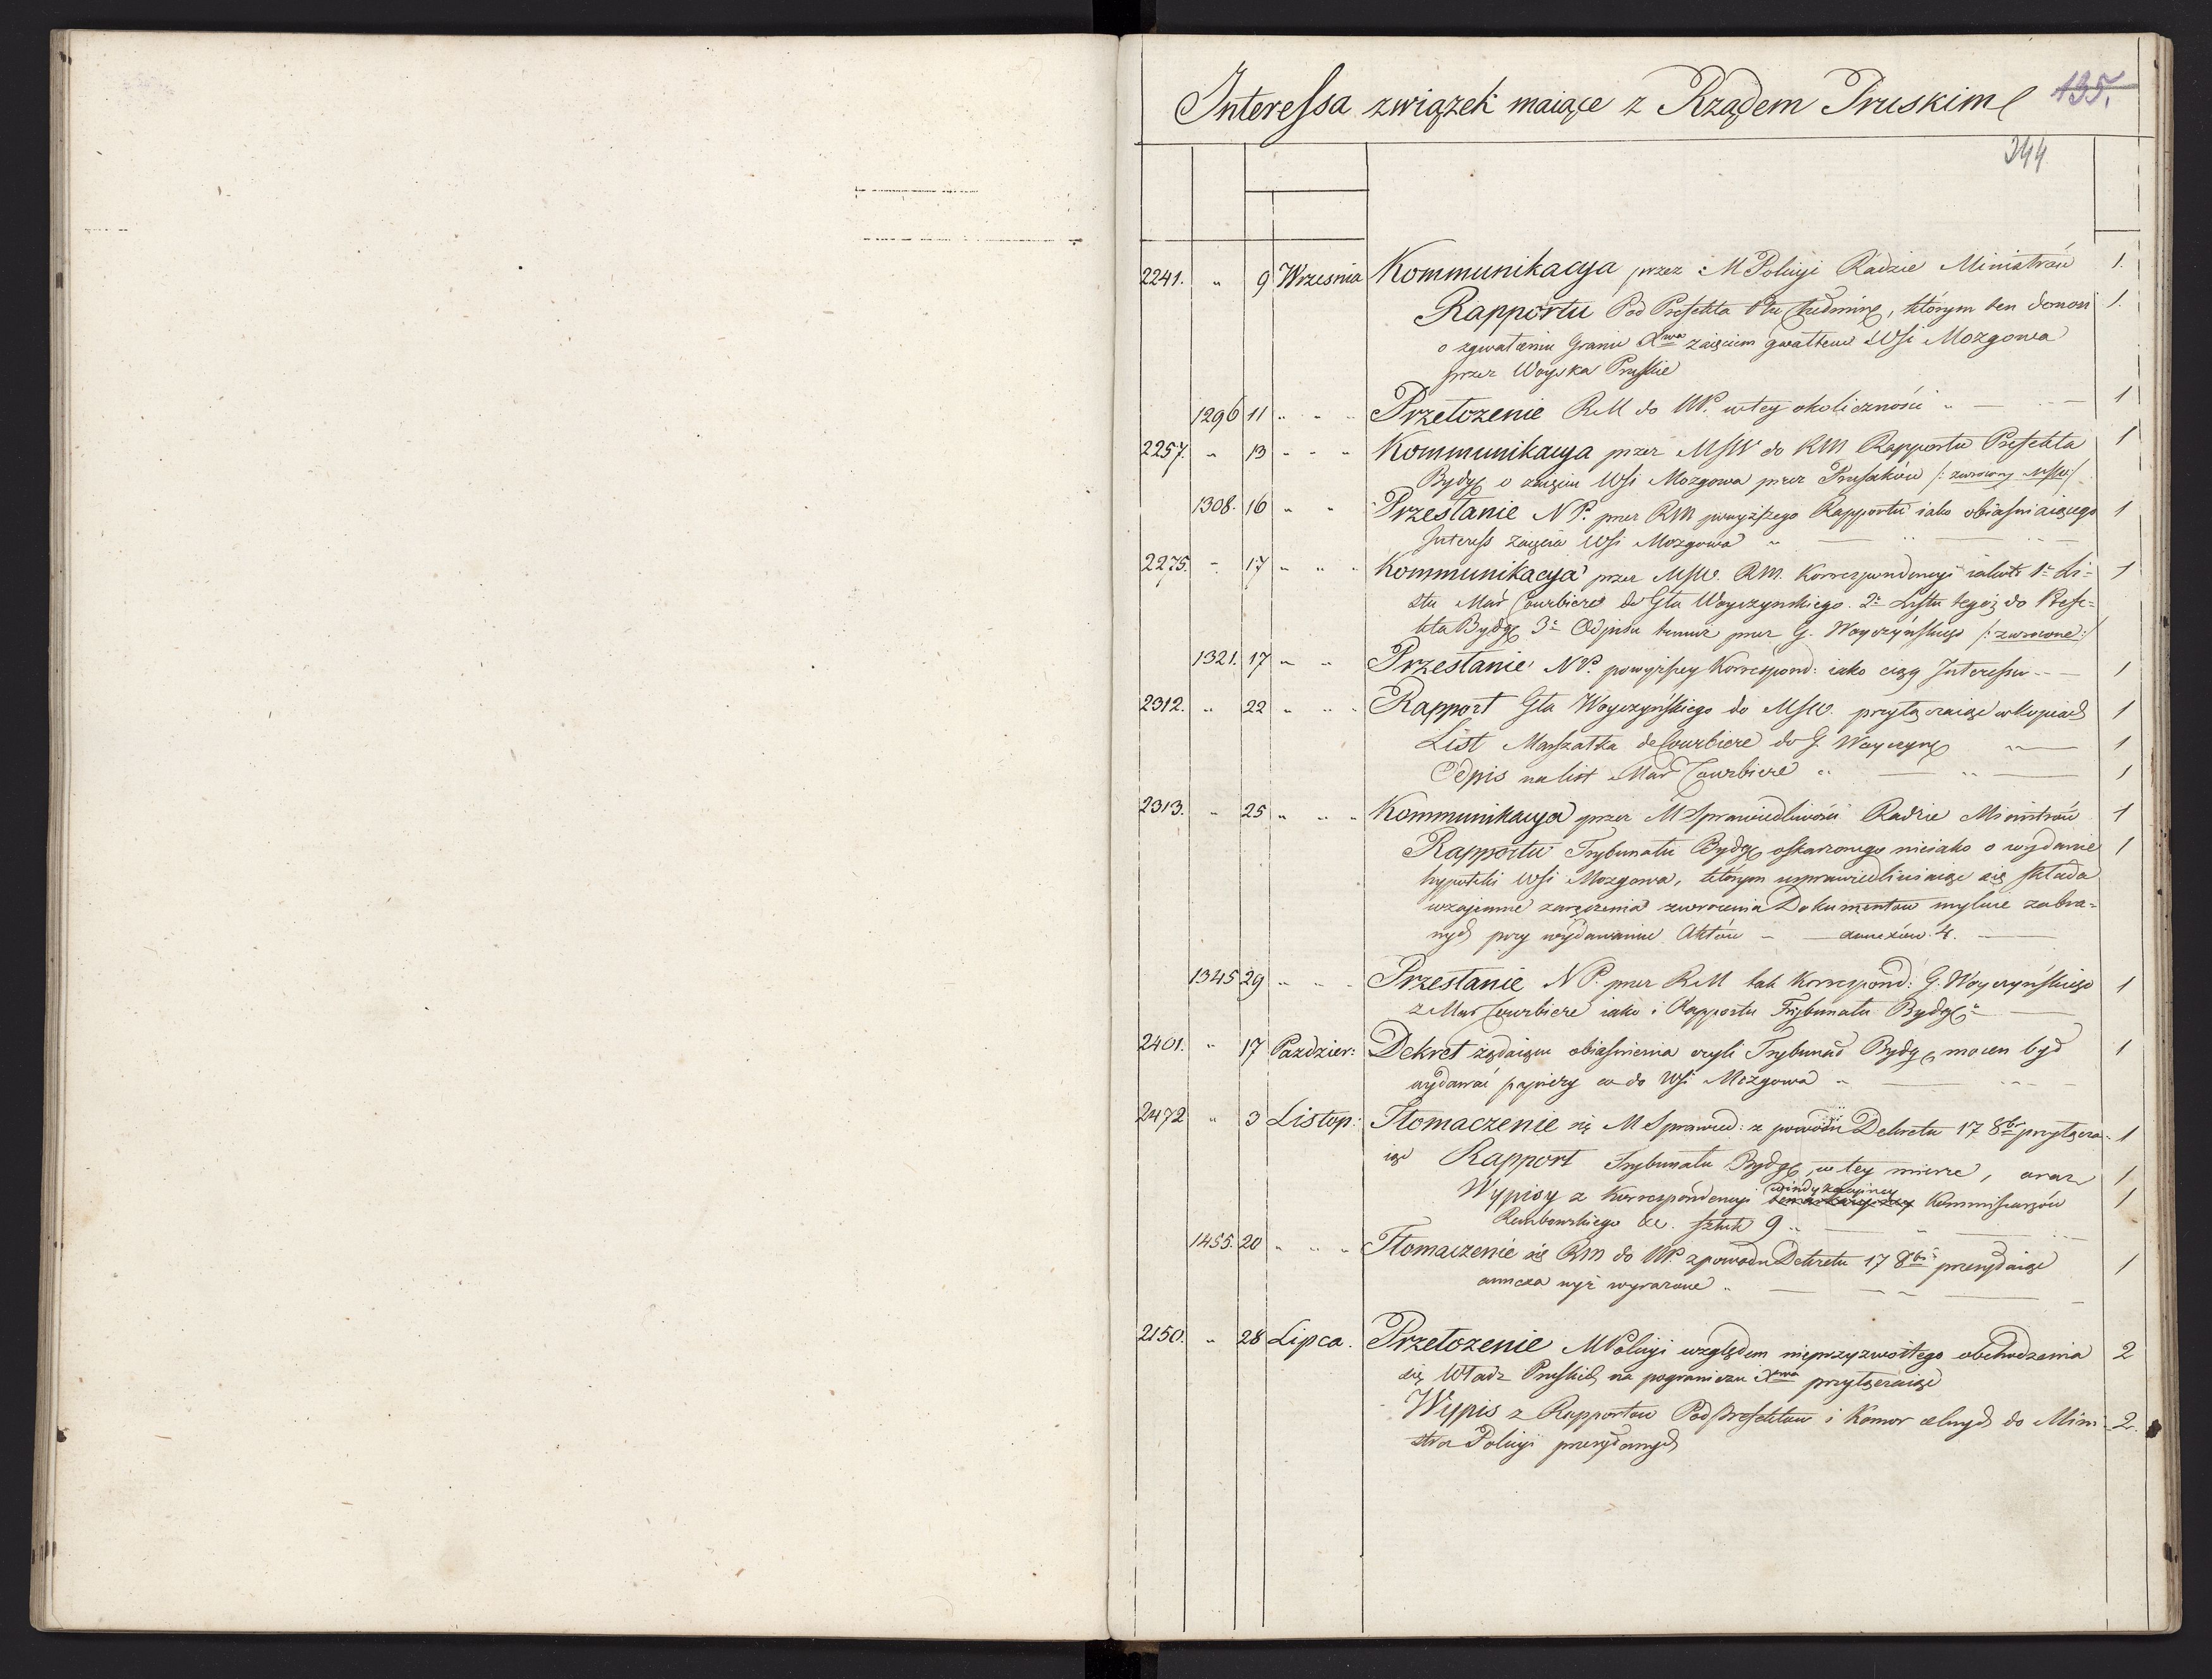 Interessa związek maiące z Rządem Pruskim 135.
344
2241. " 9 Wrzesnia Kommunikacya przez M Policyi Radzie Ministrów 1.
Rapportu Pod Prefekta , którym ten donosi 1.
o zgwałceniu Granic Xwa zaięciem gwałtem Wsi Mozgowa
przez Woyska Pruskie
1296 11 " " " Przełozenie RM do NP. w tey okoliczności " — — 1
2257. " 13 " " " Kommunikacya przez MSW do RM Rapportu Prefekta 1
Bydg o zaięciu Wsi Mozgowa przez Prusaków /: zwrocony MSW :/
1308. 16 " " Przesłanie NP. przez RM powyższego Rapportu iako obiaśniaiącego 1
Interess zaięcia Wsi Mozgowa " — " —
2275. " 17 " " " Kommunikacya przez MSW. RM. Korrespondencyi iakoto 1o Li= 1
stu Mar Courbiere do Gła Woyczynskiego. 2o Listu tegoż do Prefe=
kta Bydg 3o Odpisu temuz przez G. Woyczyńskiego /: zwrocone :/
1321. 17 " " Przesłanie NP. powyższey Korrespond: iako ciąg Interessu — 1
2312. " 22 " " " Rapport Gła Woyczyńskiego do MSW. przyłączaiąc w kopiach 1
List Marszałka de Courbiere do G. Woyczyn " — 1
Odpis na list Mar Courbiere " — " — 1
2313. " 25 " " " Kommunikacya przez M Sprawiedliwości Radzie Ministrów 1
Rapportu Trybunału Bydg oskarzonego nieiako o wydanie 1
hypoteki Wsi Mozgowa, którym usprawiedliwiaiąc się składa
wzajemne zaręczenia zwrocenia Dokumentow mylnie zabra=
nych przy wydawaniu Aktów — annexów 4. —
1345 29 " " " Przesłanie NP. przez RM tak Korrespond: G. Woyczyńskiego 1
z Mar Courbiere iako i Rapportu Trybunału Bydg —
2401. " 17 Pazdzier: Dekret żądaiący obiaśnienia czyli Trybunał Bydg mocen był 1
wydawać papiery co do Wsi Mozgowa " — "
2472 " 3 Listop: Tłomaczenie się M Sprawied: z powodu Dekretu 17 8br przyłącza- 1
iąc Rapport Trybunału Bydg w tey mierze, oraz 1
Wypisy z Korrespondencyi windykacyiney Kommissarzów 1
Rembowskiego &c. sztuk 9 " —
1455. 20 " " " Tłomaczenie się RM do NP. z powodu Dekretu 17 8br przesyłaiąc 1
annexa wyż wyrazone " —
2150. " 28 Lipca. Przełozenie M Policyi względem nieprzyzwoitego obchodzenia 2
się Władz Pruskich na pograniczu Xwa przyłączaiąc
Wypis z Rapportow Podprefektow i Komor celnych do Mini- 2.
stra Policyi przesyłanych